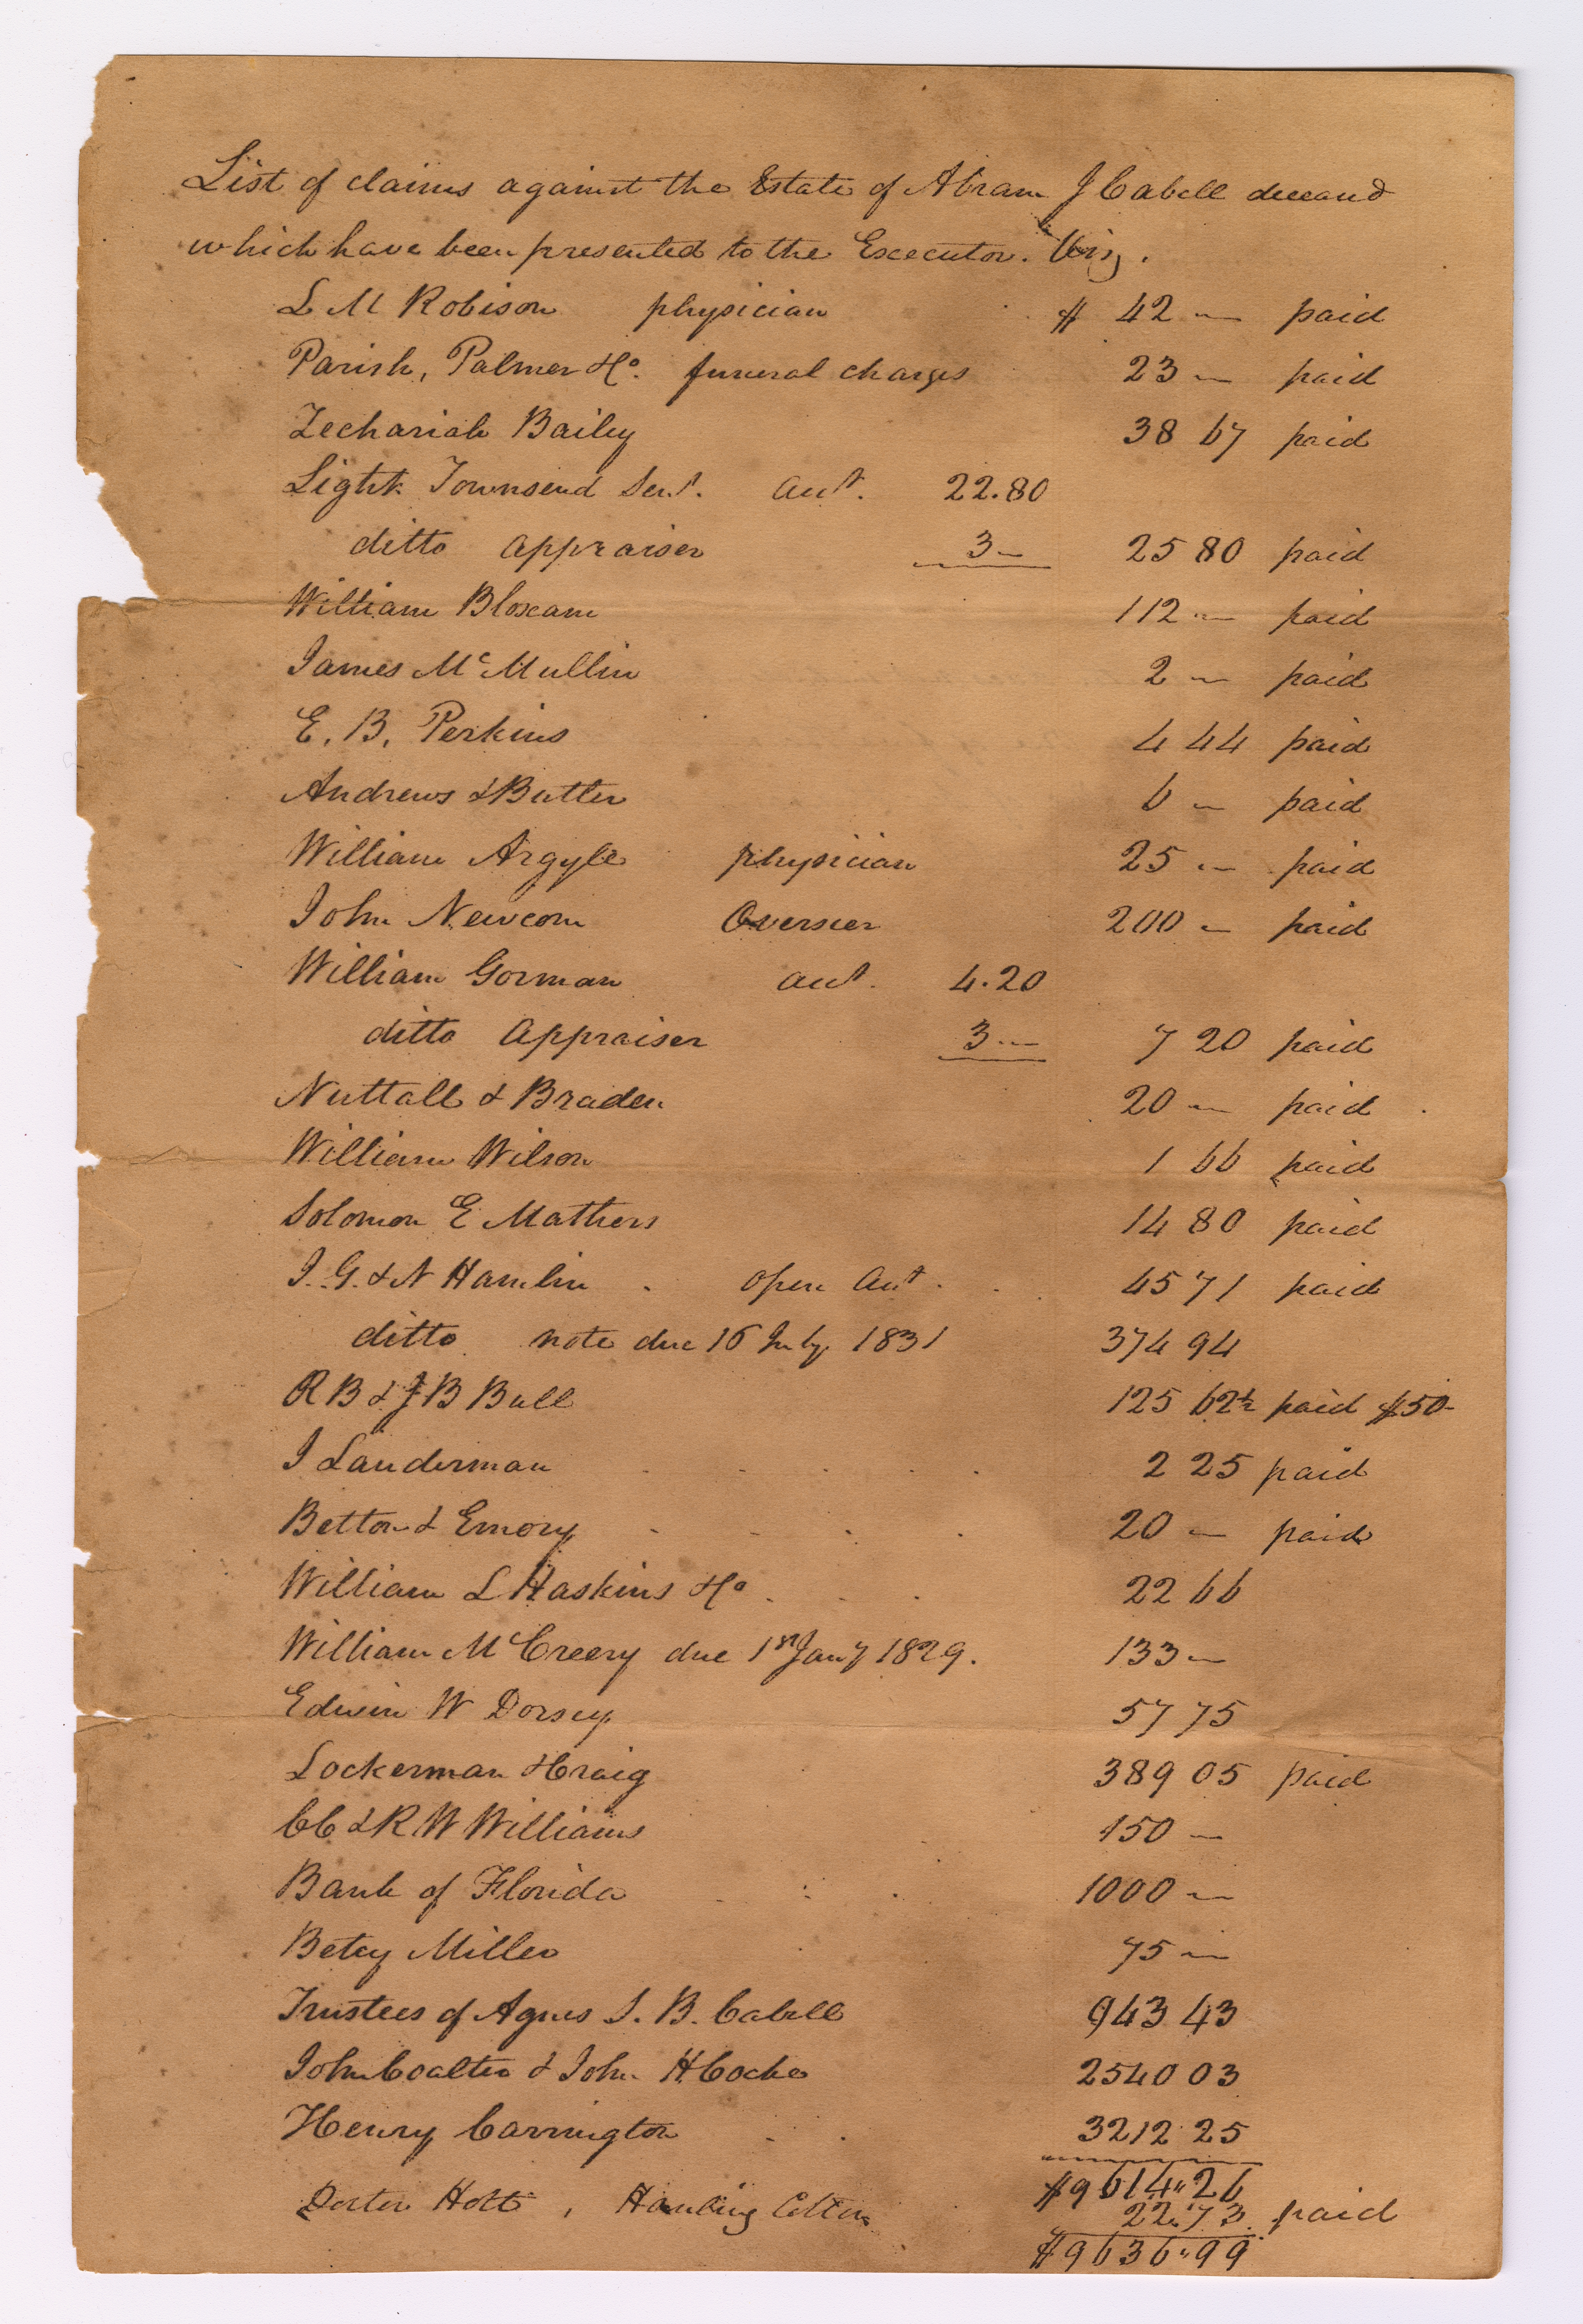 List of claims against the Estate of Abram J Cabell deceasd
which have been presented to the Excecutor. Viz.
L M Robison physician $ 42 — paid
Parish, Palmer & Co. funeral charges 23 — paid
Zechariah Bailey 38 67 paid
Light Townsend Senr. acct. 22.80
ditto appraiser 3— 25 80 paid
William Bloxam 112 — paid
James McMullin 2 — paid
E. B. Perkins 4 44 paid
Andrews & Butler 6 — paid
William Argyle physician 25 — paid
John Newcom Overseer 200 — paid
William Gorman acct. 4.20
ditto appraiser 3 — 7 20 paid
Nuttall & Braden 20 — paid
William Wilson 1 66 paid
Solomon E Mathers 14 80 paid
J. G. & N Hamlin open acct. 45 71 paid
ditto note due 16 July 1831 374 94
R B & J B Bull 125 62½ paid $50-
J Lauderman 2 25 paid
Betton & Emory 20 — paid
William L Haskins & Co 22 66
William McCreery due 1st Jany 1829. 133 —
Edwin W Dorsey 57 75
Lockerman & Craig 389 05 paid
CC & R W Williams 150 —
Bank of Florida 1000 —
Betsy Miller 75 —
Trustees of Agnes S. B. Cabell 943 43
John Coalter & John H Cocke 2540 03
Henry Carrington 3212 25
$9614"26
Holt, Hauling Cotton 22.73 paid
$9636"99